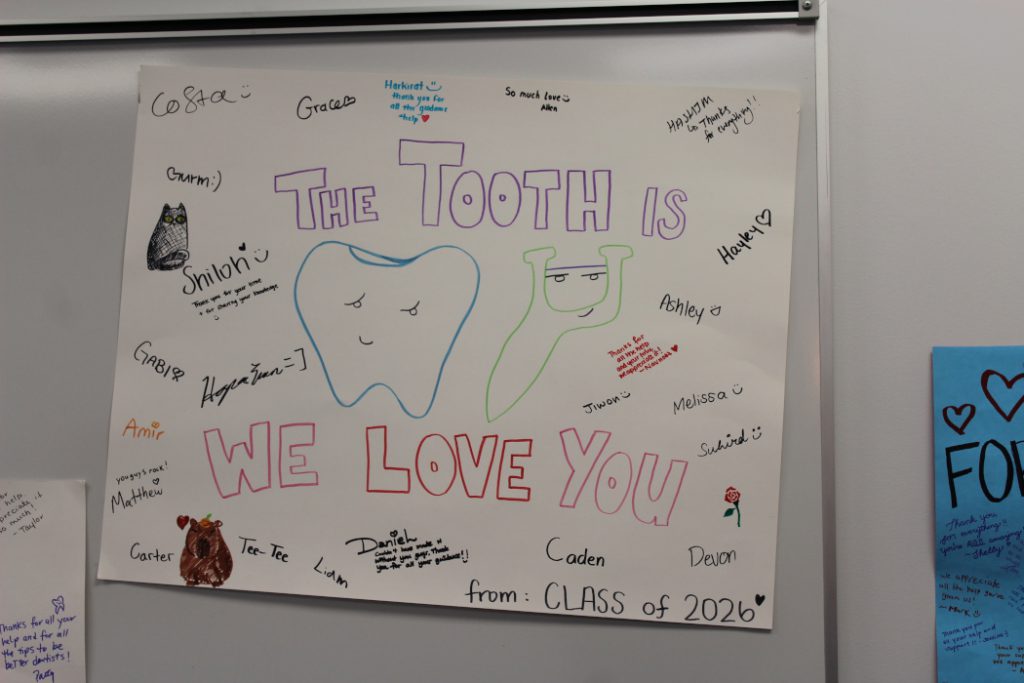 Costa
Grace
Harkirat
thank you for
all the guidance
+help
So much love
Allen
HASHIM
Thanks
for everything!!
Gurm:)
THE TOOTH IS
Hayley
Shiloh
Thank you for your time
+ for sharing your knowledge
Ashley
GABI
Thanks for
all the help
and your time
we appreciate it!
Jiwon
Melissa
Amir
WE LOVE YOU
Suhird
you guys rock!
Matthew
Carter
Tee-Tee
Liam
Danieh
Couldn't have made it
without you guys. Thank
you for all your guidance!!
Caden
Devon
from: CLASS of 2026
help
so much!
- Taylor
Thanks for all your
help and for all
the tips to be
better dentists!
FOR
Thank you
for everything!!
you're all amazing!
~Shelby
we appreciate
all the help you've
given us!
~Mark
Thank you for
all your help and
support!!
Thank you
your